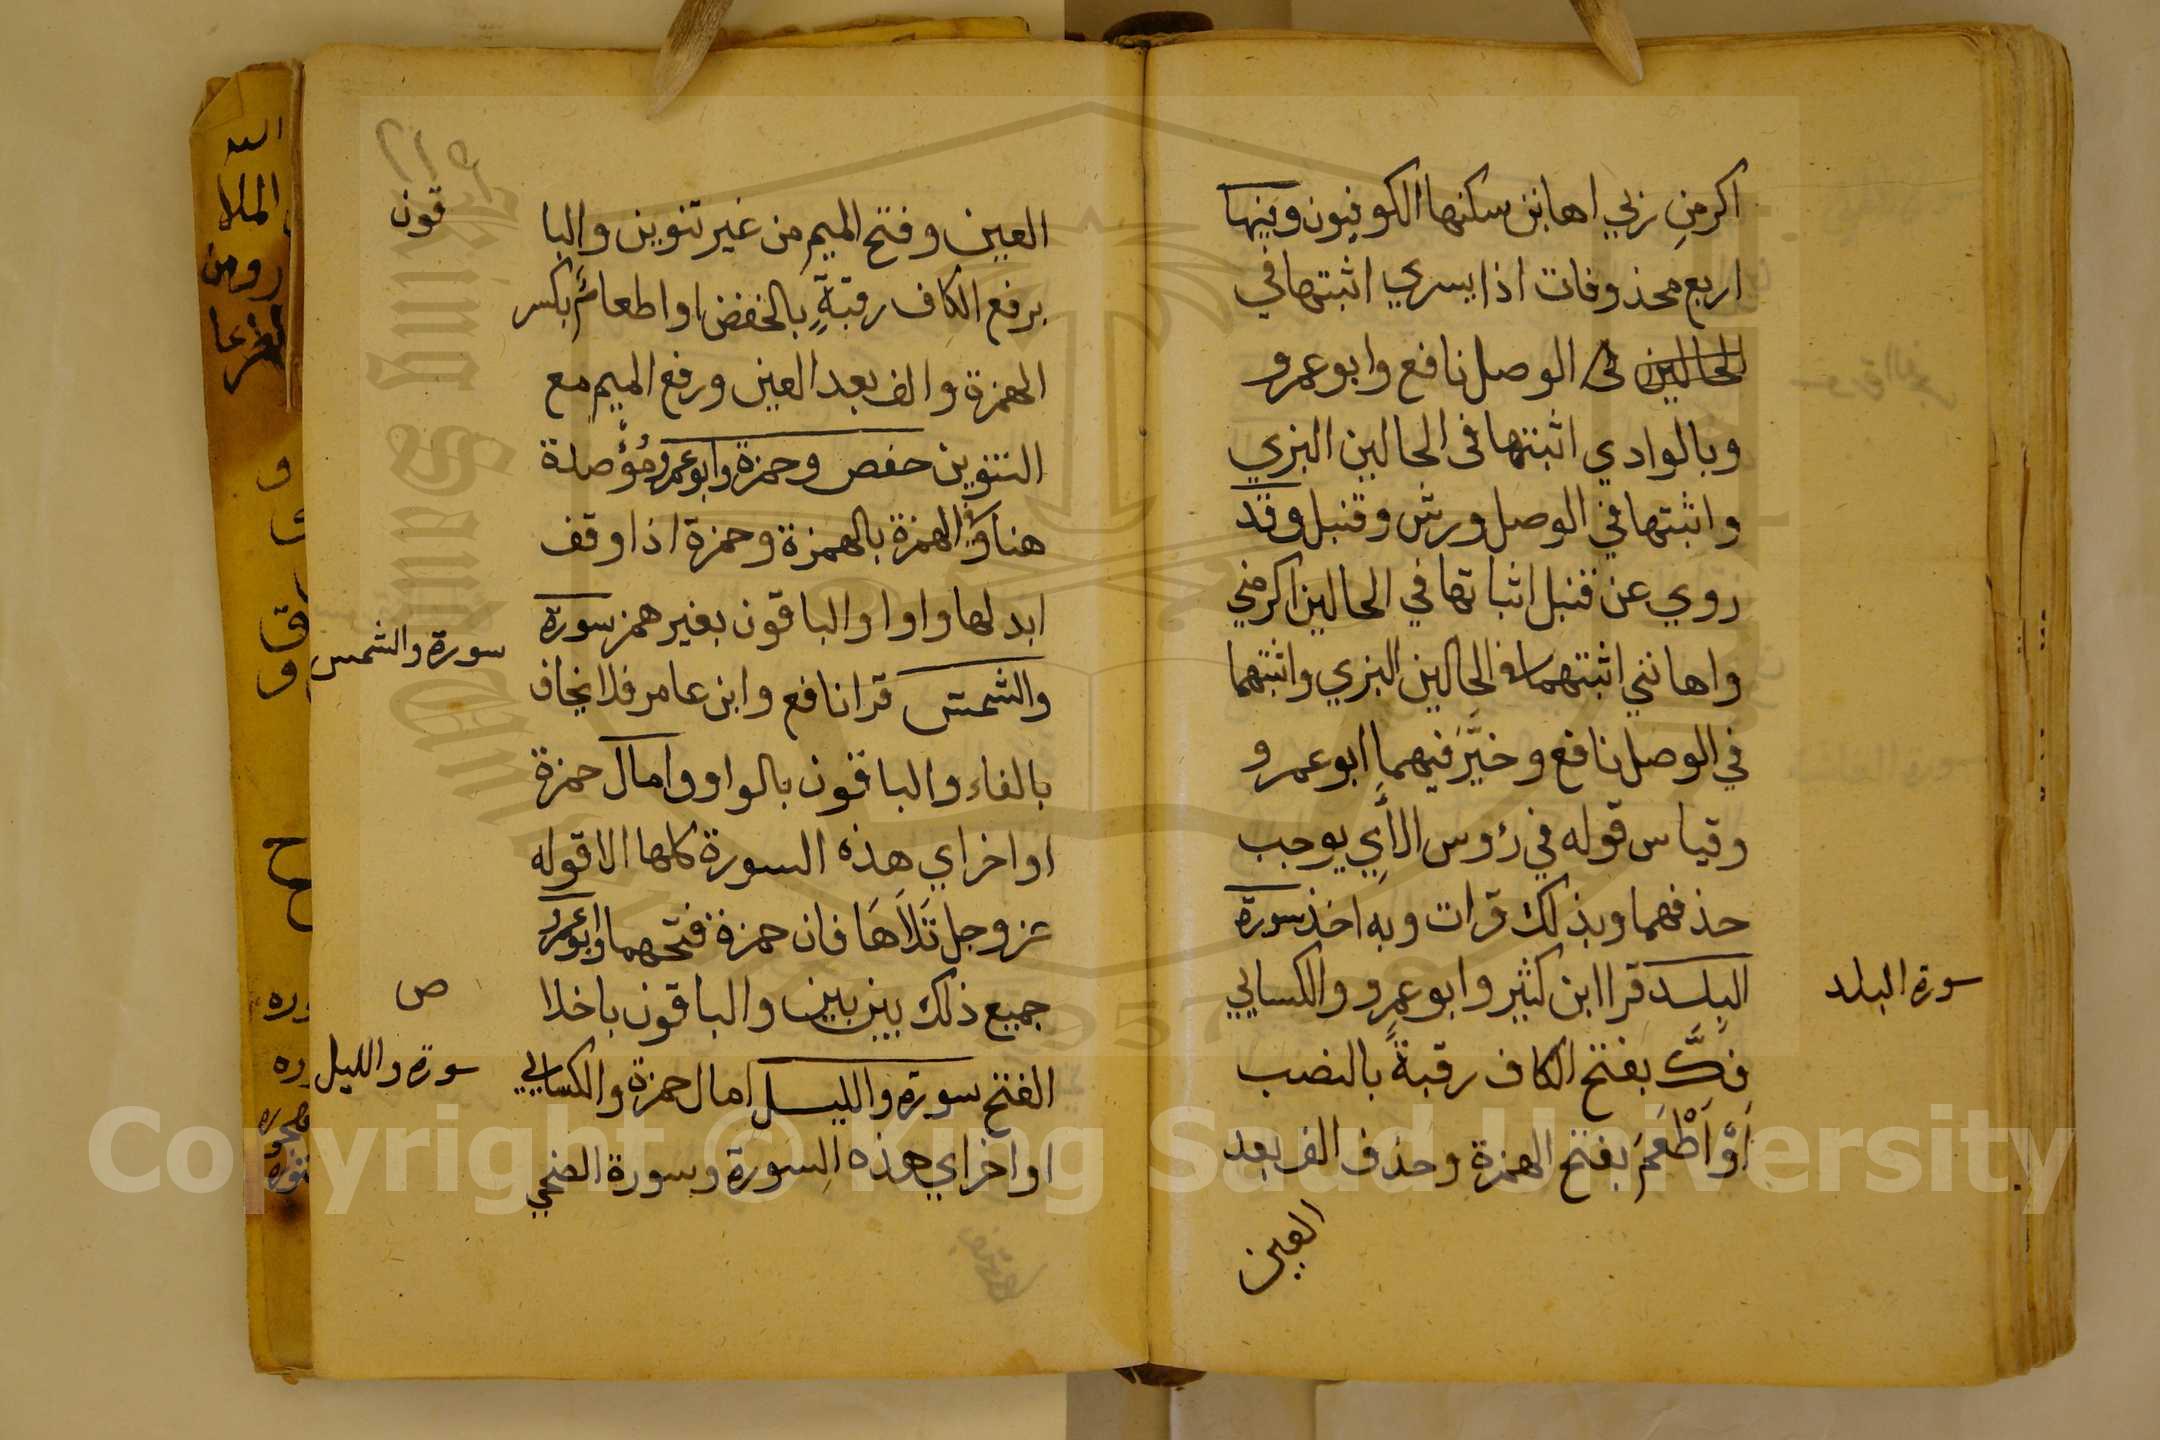 اكرمنِ ربي اهانن سكنها الكوفيون وفيها
اربع محذوفات اذا يسري اثبتها في
الحالين في الوصل نافع وابو عمرو
وبالوادي اثبتها في الحالين البزي
واثبتها في الوصل ورش وقنبل وقد
روي عن قنبل اثباتها في الحالين اكرمني
واهانني اثبتهما في الحالين البزي واثبتهما
في الوصل نافع وخيَّر فيهما ابو عمرو
وقياس قوله في رؤس الأي يوجب
حذفهما وبذلك قرات وبه اخذ سورة
البلد قرا ابن كثير وابو عمرو والكسايي
سورة البلد
فكَّ بفتح الكاف رقبةً بالنصب
اَوْ اَطْعَمَ بفتح الهمزة وحذف الف بعد
العين
العين وفتح الميم من غير تنوين والبا
قون
برفع الكاف رقبةٍ بالخفض او اطعام بكسر
الهمزة والف بعد العين ورفع الميم مع
التنوين حفص وحمزة وابو عمرو مُؤْصدة
هنا وفي الهمزة بالهمزة وحمزة اذا وقف
ابدلها واوا والباقون بغير همز سورة
سورة والشمس
والشمس قرا نافع وابن عامر فلا يخاف
بالفاء والباقون بالواو وامال حمزة
اواخر اي هذه السورة كلها الا قوله
عز وجل تَلاَهَا فان حمزة فتحهما وابو عمرو
جميع ذلك بين بين والباقون باخلا
ص
الفتح سورة والليل امال حمزة والكسايي
سورة والليل
اواخر اي هذه السورة وسورة الضحي
Copyright © King Saud University
1957